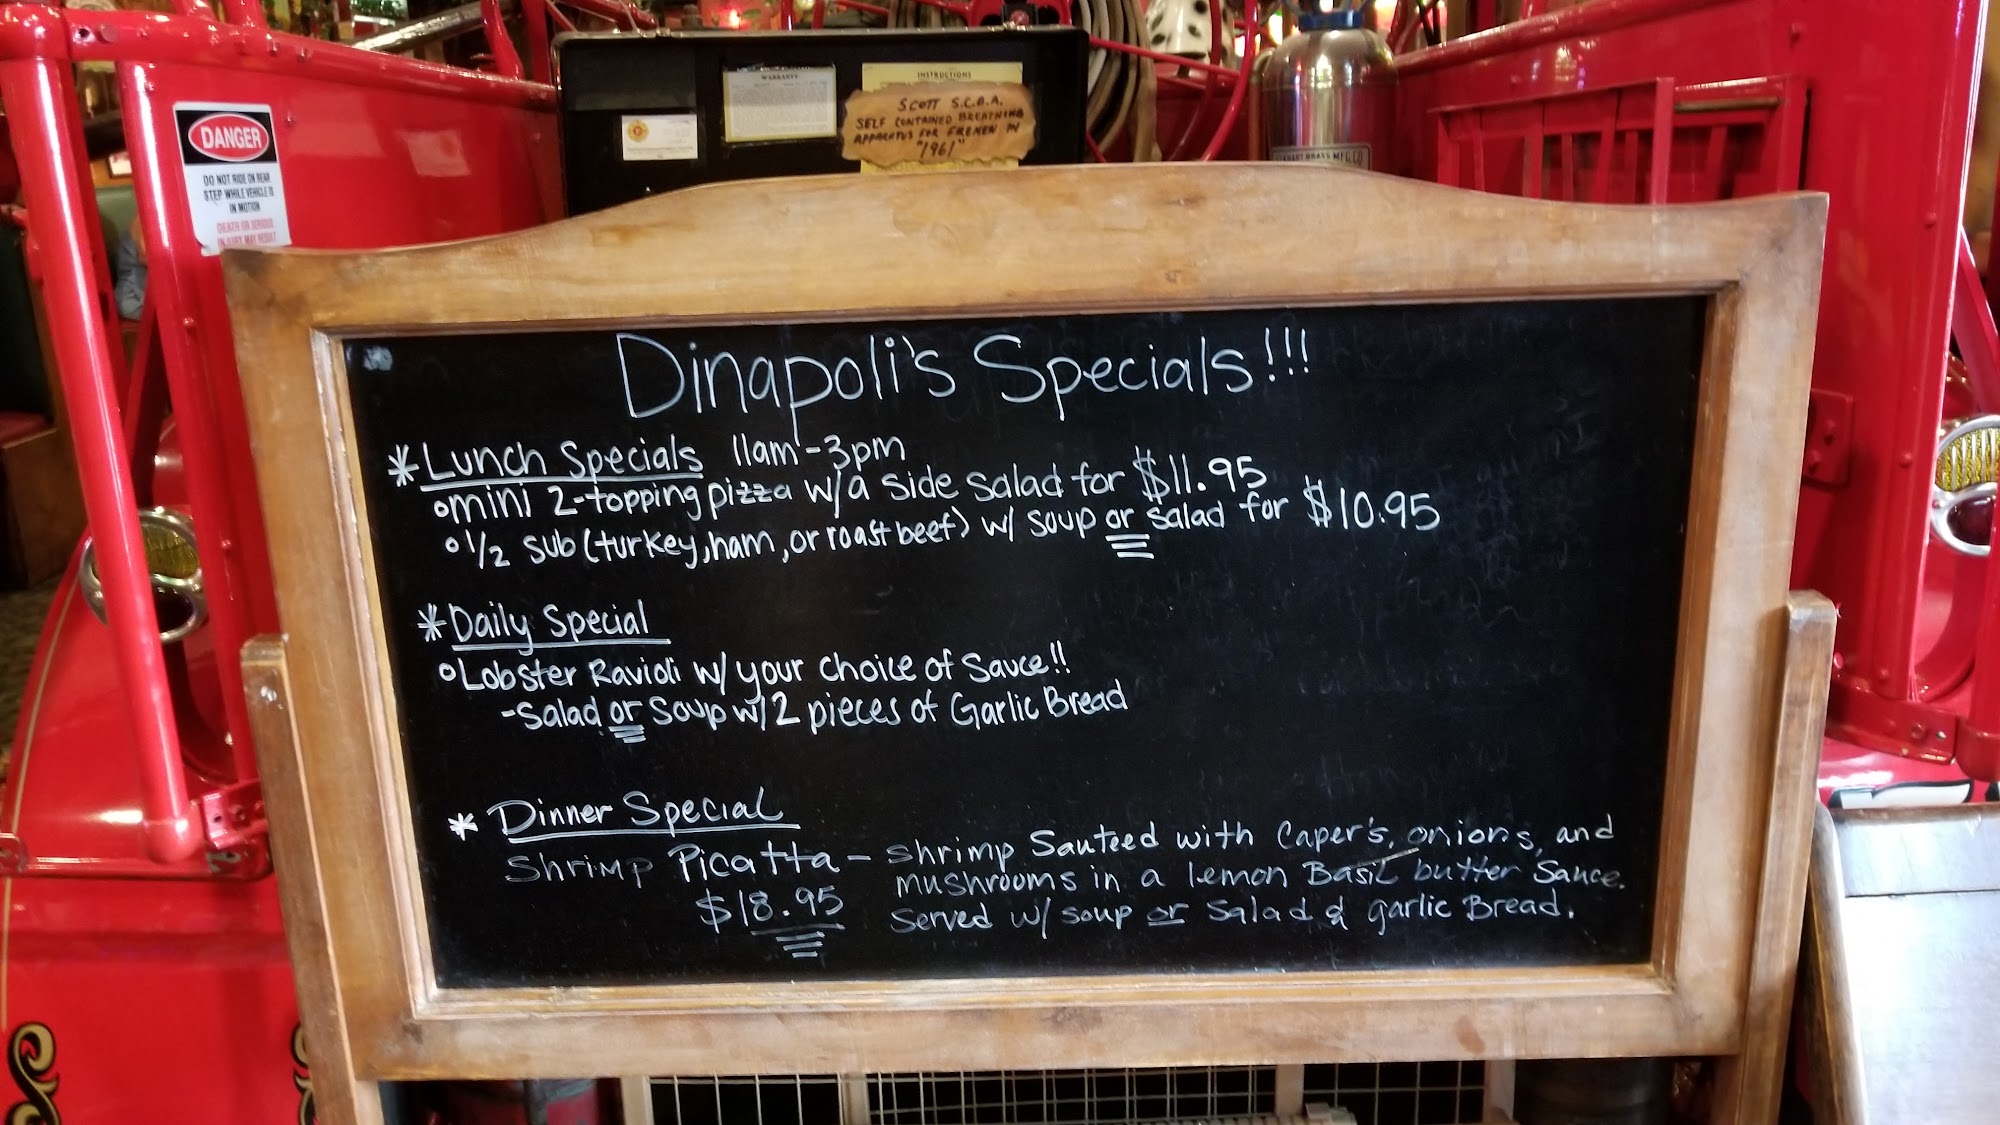 WARRANTY
INSTRUCTIONS
SCOTT S.C.B.A.
SELF CONTAINED BREATHING
APPARATUS FOR FIREMEN IN
"1961"
DANGER
DO NOT RIDE ON REAR
STEP WHILE VEHICLE IS
IN MOTION
DEATH OR SERIOUS
INJURY MAY RESULT
BRASS MFG. CO
Dinapoli's Specials!!!
*Lunch Specials 11am-3pm
mini 2-topping pizza w/a side salad for $11.95
1/2 sub (turkey, ham, or roast beef) w/ soup or salad for $10.95
*Daily Special
Lobster Ravioli w/ your choice of Sauce!!
-Salad or Soup w/ 2 pieces of Garlic Bread
* Dinner Special
Shrimp Picatta - Shrimp Sauteed with Caper's, onions, and
mushrooms in a lemon Basil butter Sauce.
$18.95 Served w/ soup or Salad & garlic Bread.